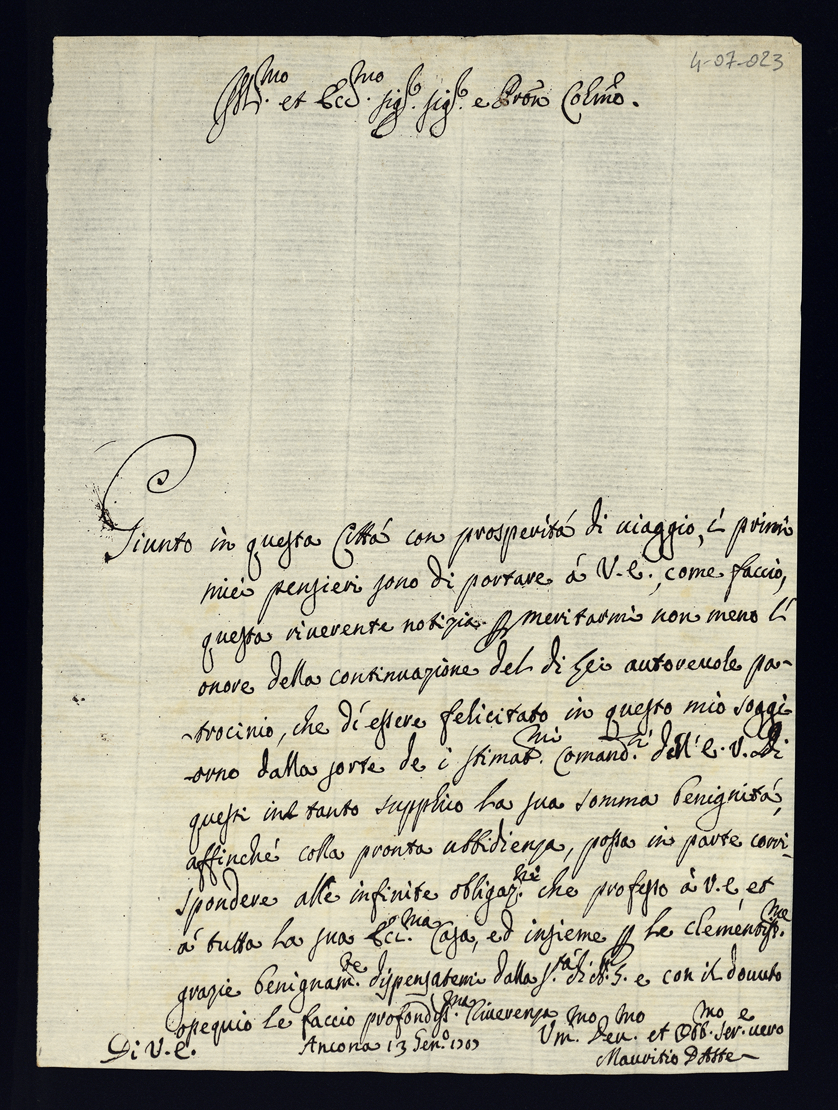 4-07-023
Ill.mo et Ecc.mo Sig.r Sig.r e Pron Colmo.
Giunto in questa Città con prosperità di viaggio, i primi
miei pensieri sono di portare à V.E., come faccio,
questa riverente notizia p meritarmi non meno l'
onore della continuazione del di Lei autorevole pa-
-trocinio, che d'essere felicitato in questo mio soggi
-orno dalla sorte de i stimat.mi Comand.ti dell'E.V. Di
questi int tanto supplico la sua somma benignità,
affinché colla pronta ubbidienza, possa in parte corri-
spondere alle infinite obligaz.ni che professo à V.E. et
à tutta la sua Ecc.ma Casa, ed insieme p le clementiss.me
grazie benignam.te dispensatemi dalla S.tà di N.S. e con il dovuto
ossequio le faccio profondiss.ma riverenza
Di V.E.
Ancona 13 Gen.o 1707
Um.mo Dev.mo et Obb.mo Ser.e vero
Mauritio D'Aste